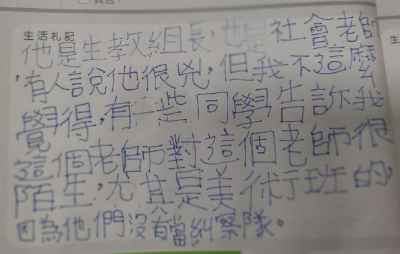 生活札記
他是生教組長,也是社會老師
,有人說他很兇,但我不這麼
覺得,有一些同學告訴我
這個老師對這個老師很
陌生,尤其是美術班的,
因為他們沒有當糾察隊。